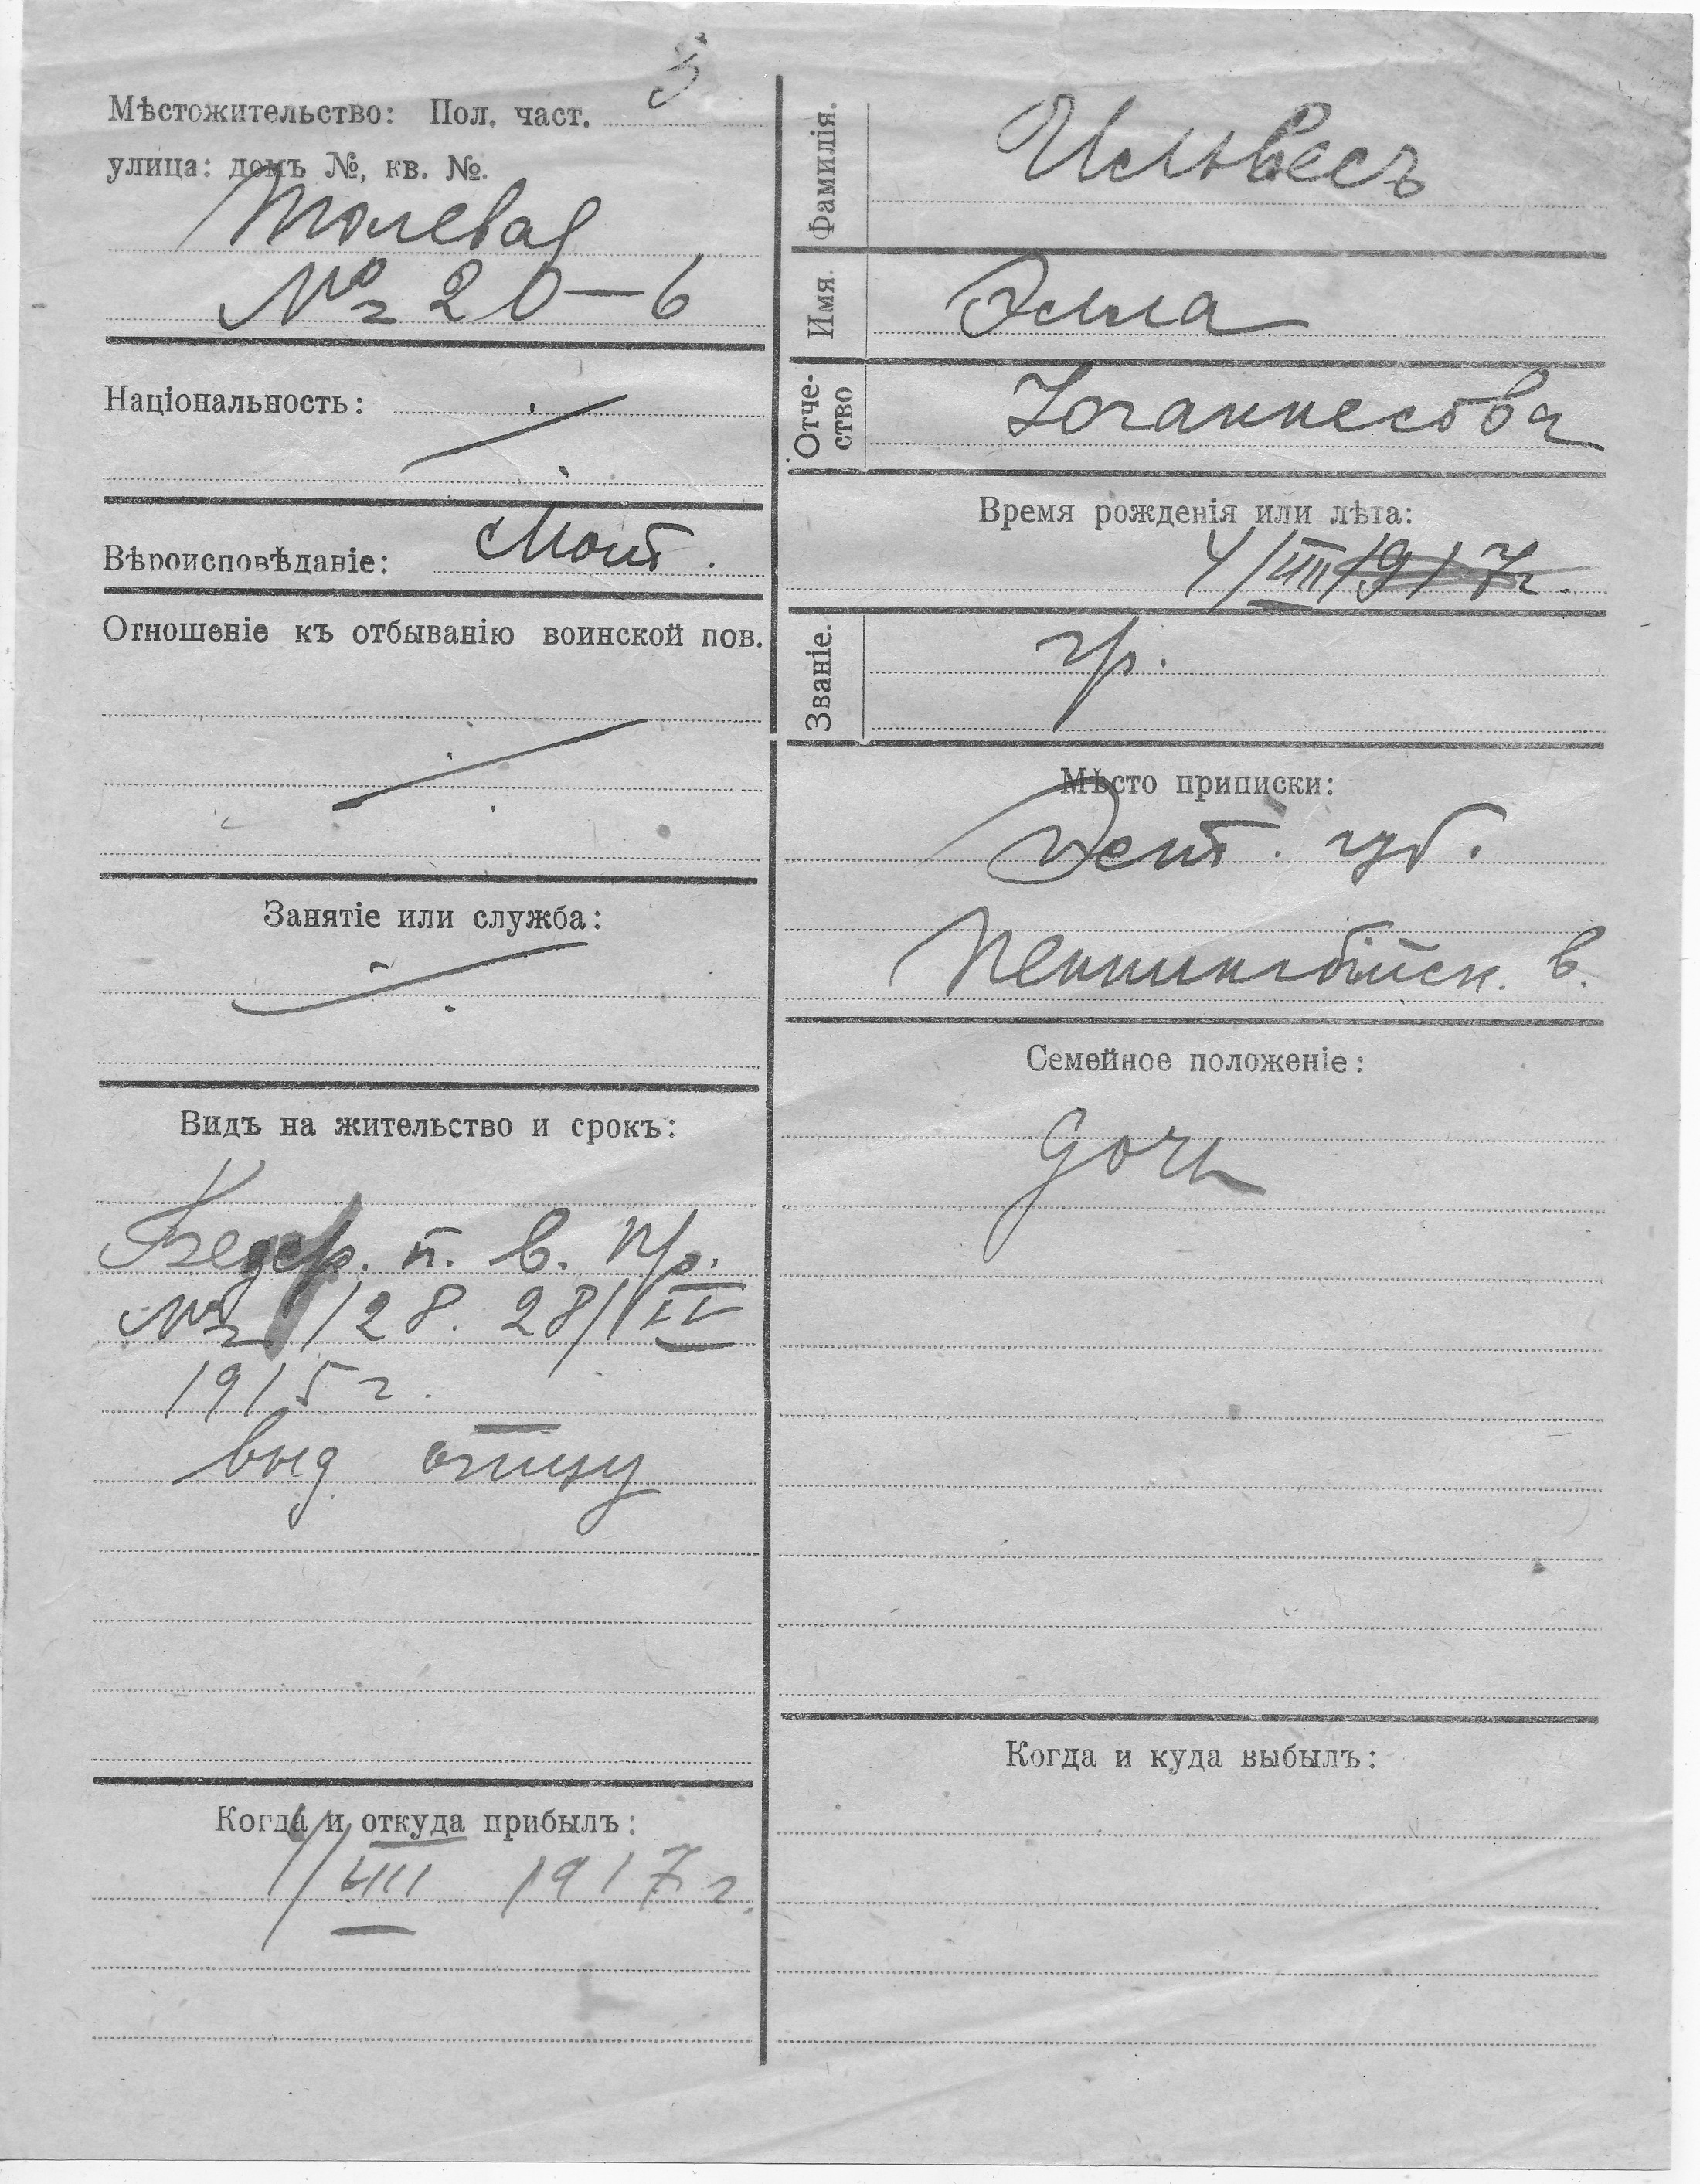 Мѣстожительство: Пол. част. 3
улица: домъ №, кв. №.
Полевая
№ 20 — 6
Національность:
Вѣроисповѣданіе: Лют.
Отношеніе къ отбыванію воинской пов.
Занятіе или служба:
Видъ на жительство и срокъ:
п. в. пр.
№ 128. 28/IV
1915 г.
выд. отцу
Когда и откуда прибылъ:
1917 г.
Фамилія. Ильвесъ
Имя. Элла
Отче-
ство
Іоганнесова
Время рожденія или лѣта:
4/VIII 1917 г.
Званіе. гр.
Мѣсто приписки:
Эст. губ.
в.
Семейное положеніе:
дочь
Когда и куда выбылъ: